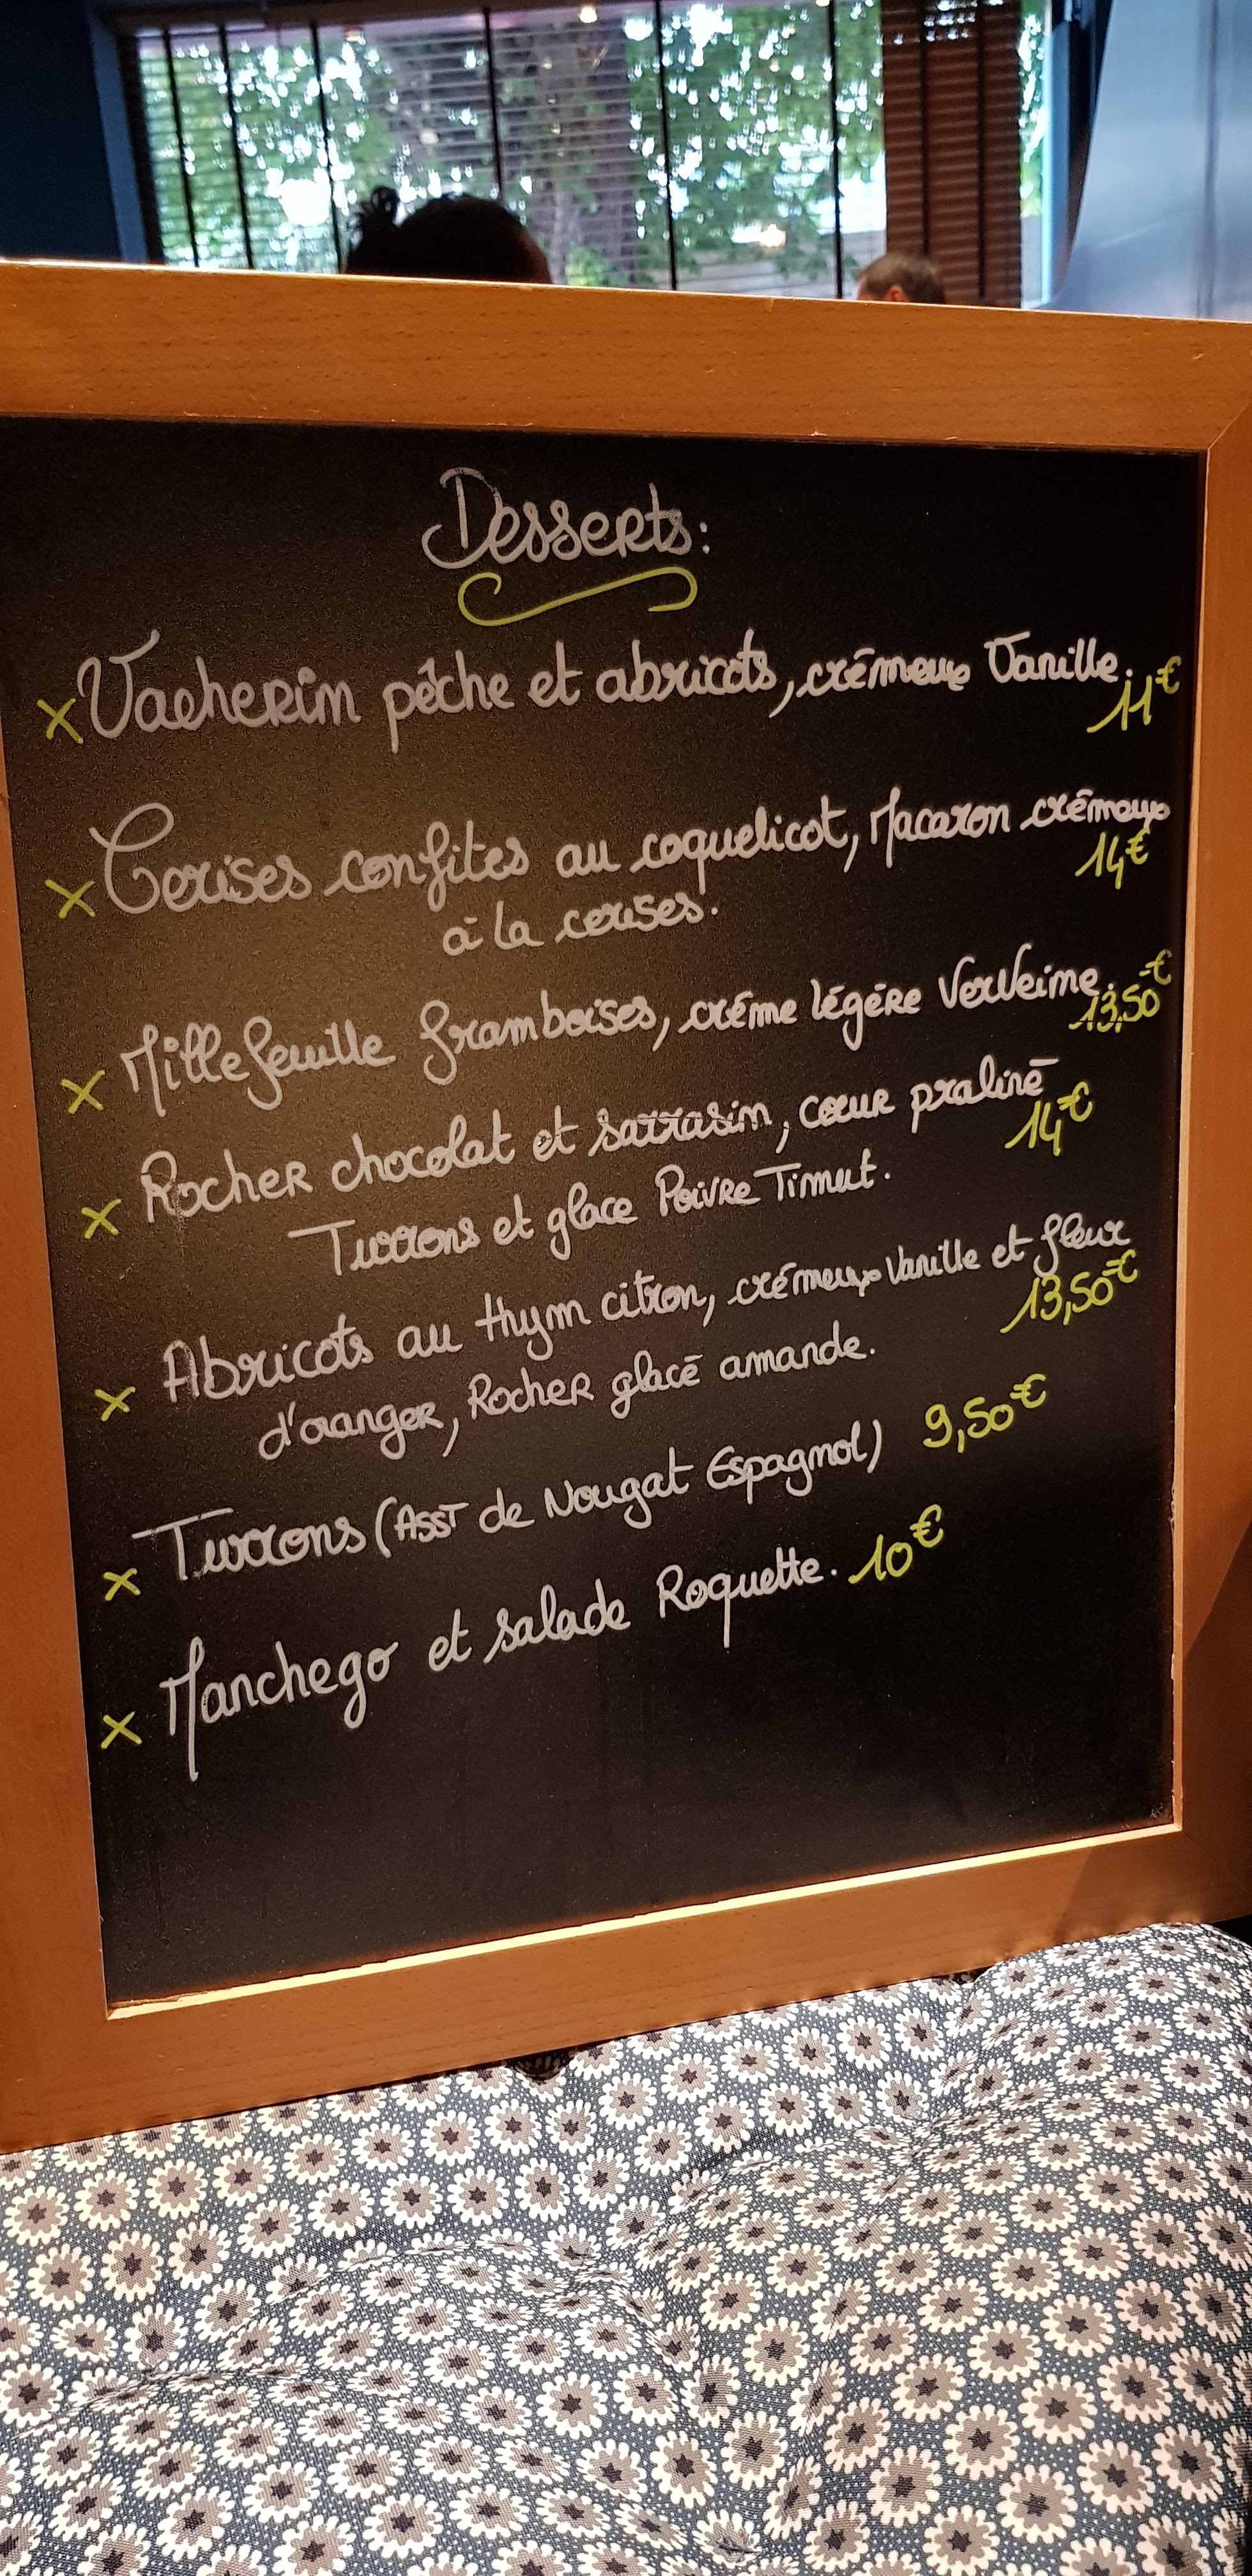 Desserts:
x Vacherin pêche et abricots, crémeux Vanille. 11€
x Cerises confites au coquelicot, Macaron crémeux
à la cerises. 14€
x Millefeuille framboises, créme légére Verveine. 13,50€
x Rocher chocolat et sarrasin, cœur praliné
Turrons et glace Poivre Timut. 14€
x Abricots au thym citron, crémeux Vanille et fleur
d'oranger, Rocher glacé amande. 13,50€
x Turrons (Asst de Nougat Espagnol) 9,50€
x Manchego et salade Roquette. 10€